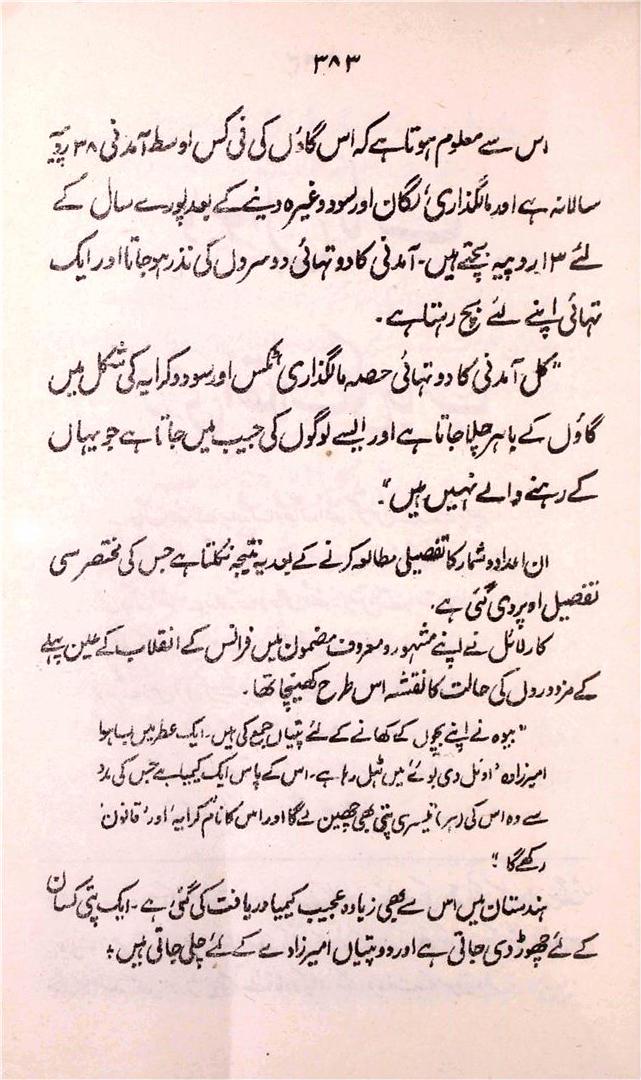 ۳۸۳
اس سے معلوم ہوتا ہے کہ اس گاؤں کی فی کس اوسط آمدنی ۳۸ روپیہ
سالانہ ہے اور مالگذاری، لگان اور سود وغیرہ دینے کے بعد پورے سال کے
لئے ۱۳ روپیہ بچتے ہیں۔ آمدنی کا دو تہائی دوسروں کی نذر ہو جاتا اور ایک
تہائی اپنے لئے بچ رہتا ہے۔
"کل آمدنی کا دو تہائی حصہ مالگذاری ٹکس اور سود و کرایہ کی شکل میں
گاؤں کے باہر چلا جاتا ہے اور ایسے لوگوں کی جیب میں جاتا ہے جو یہاں
کے رہنے والے نہیں ہیں"۔
ان اعداد و شمار کا تفصیلی مطالعہ کرنے کے بعد یہ نتیجہ نکلتا ہے جس کی مختصر سی
تفصیل اوپر دی گئی ہے۔
کارلائل نے اپنے مشہور و معروف مضمون میں فرانس کے انقلاب کے عین پہلے
کے مزدوروں کی حالت کا نقشہ اس طرح کھینچا تھا۔
"بیوہ نے اپنے بچوں کے کھانے کے لئے پتیاں جمع کی ہیں۔ ایک عطر میں بسا ہوا
امیرزادہ 'اوئل دی بوئے' میں ٹہل رہا ہے۔ اس کے پاس ایک کیمیا ہے جس کی مدد
سے وہ اس کی (ہر) تیسری پتی بھی چھین لے گا اور اس کا نام 'کرایہ' اور 'قانون'
رکھے گا"
ہندستان میں اس سے بھی زیادہ عجیب کیمیا دریافت کی گئی ہے۔ ایک پتی کسان
کے لئے چھوڑ دی جاتی ہے اور دو پتیاں امیرزادے کے لئے چلی جاتی ہیں؛